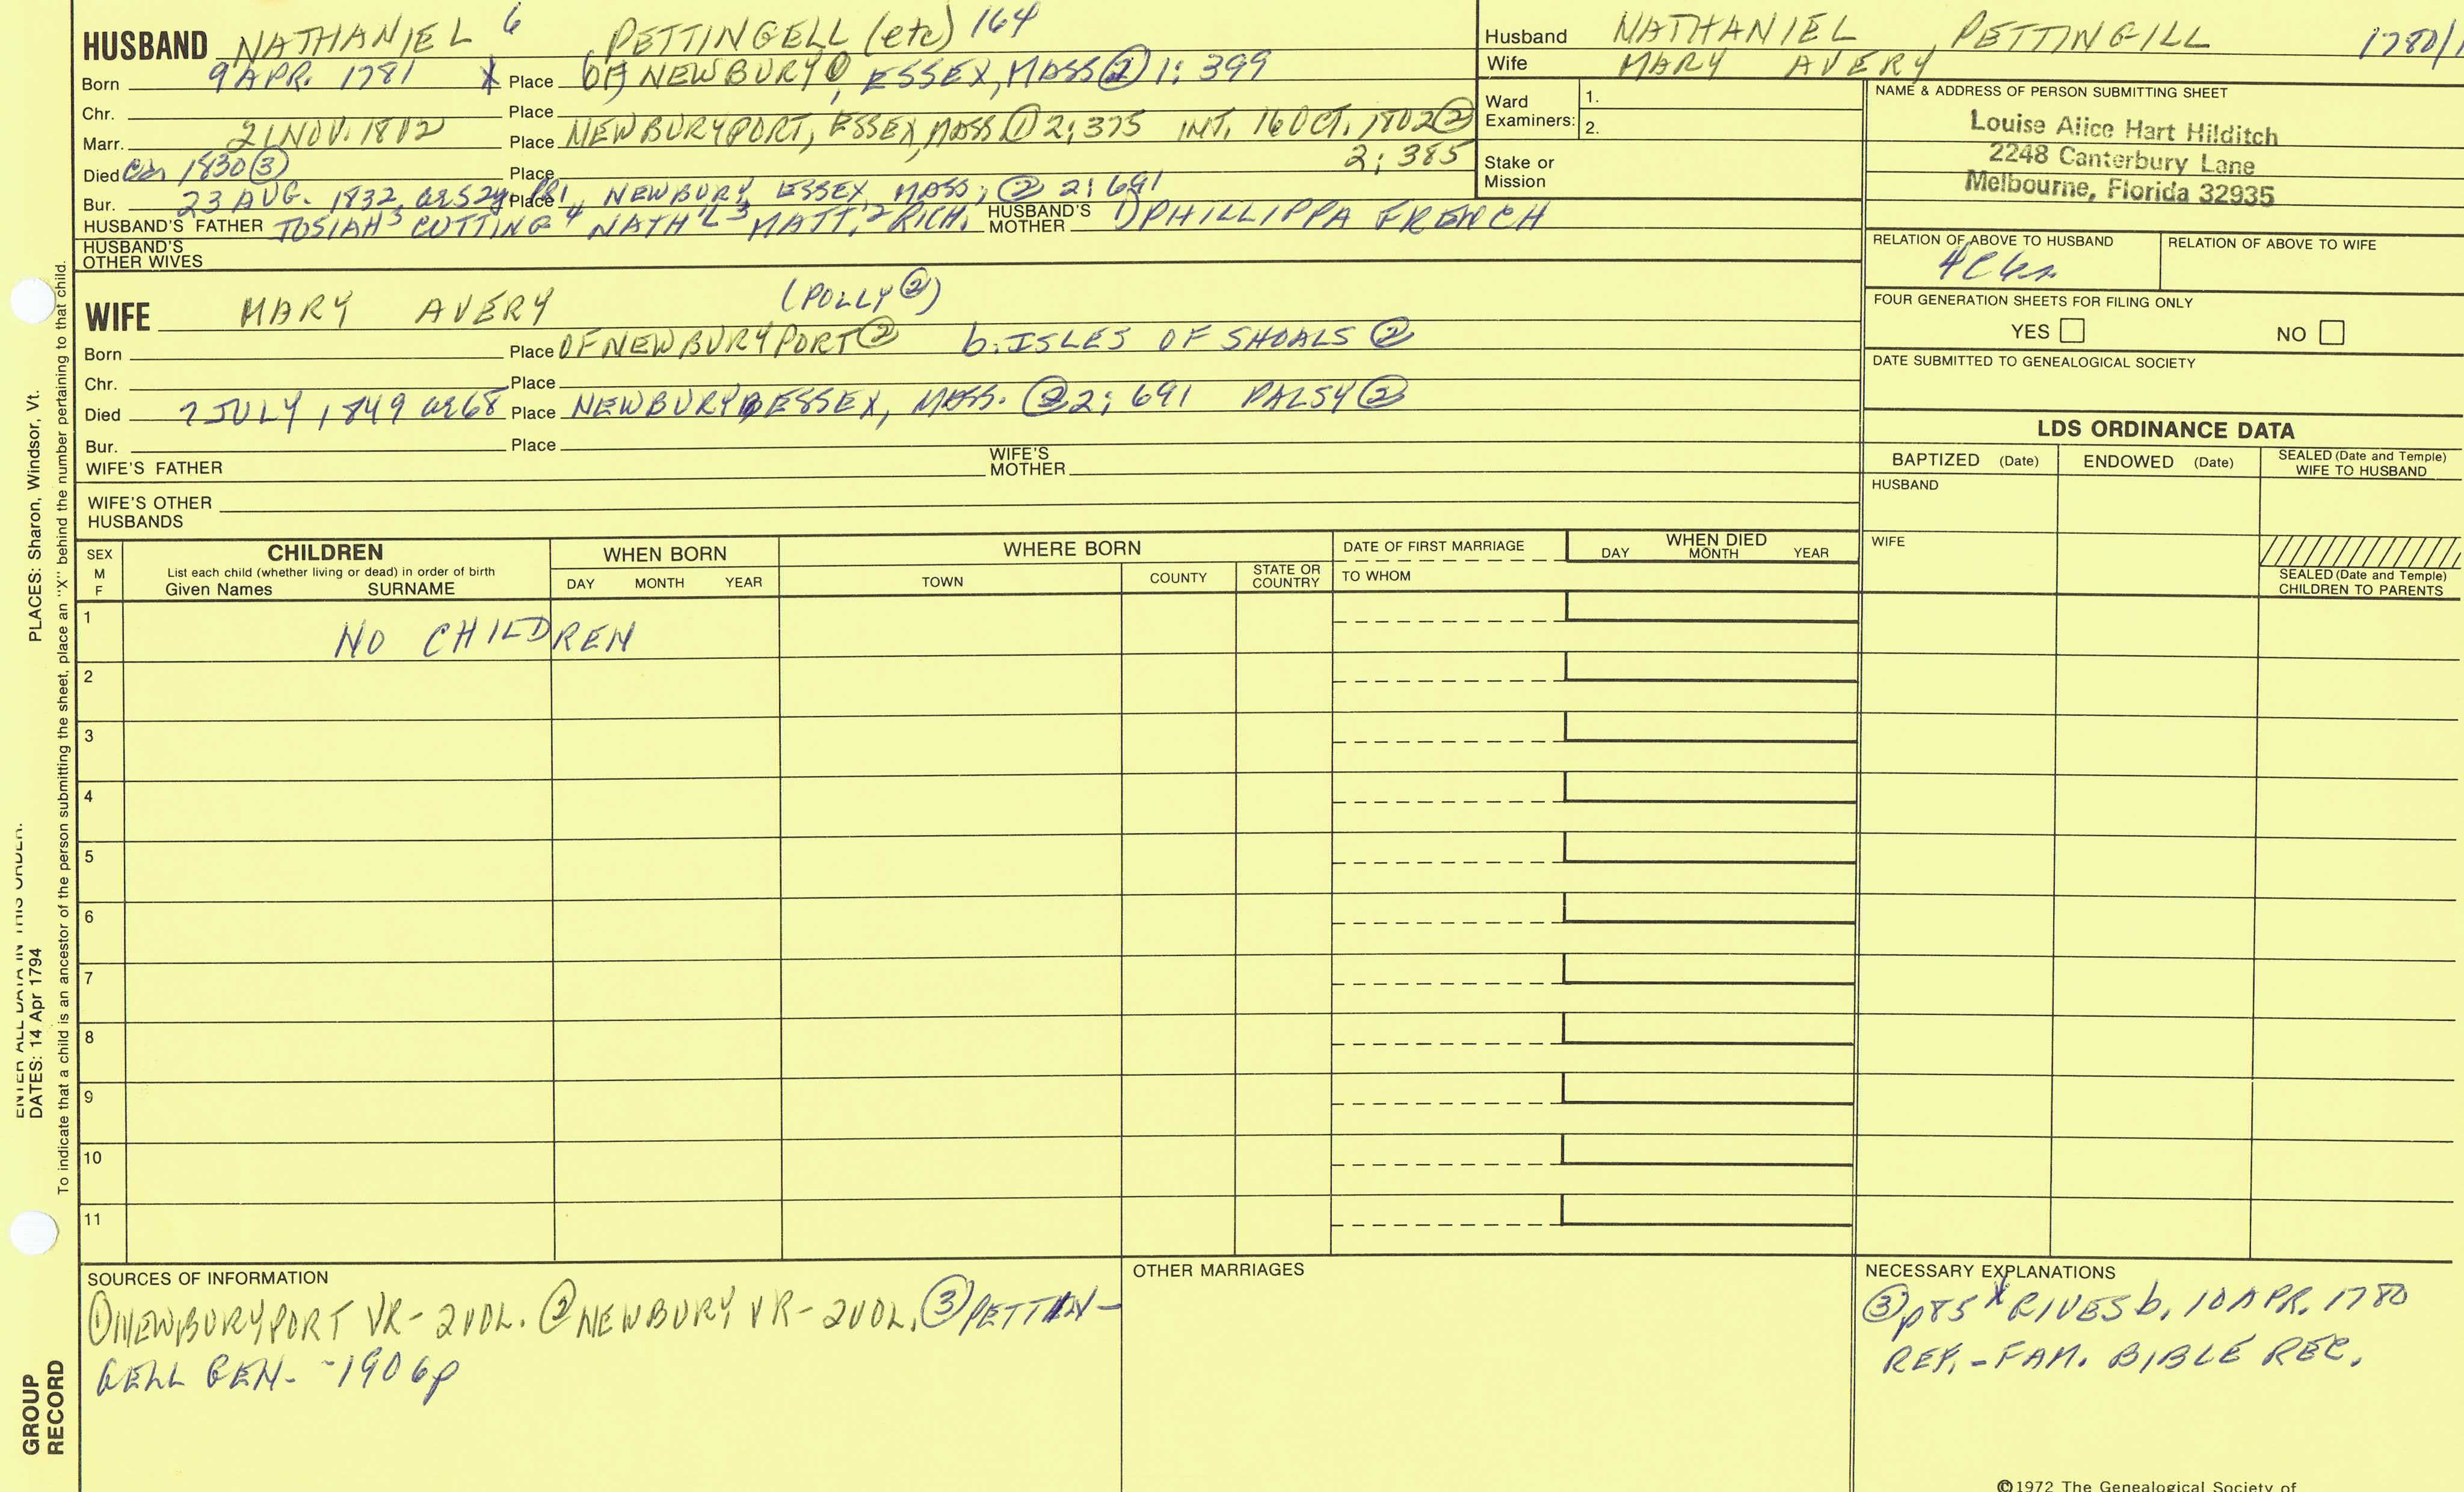 HUSBAND NATHANIEL 6 PETTINGELL (etc) 164
Born 9 APR. 1781 X Place OF NEWBURY ①, ESSEX, MASS ② 1; 399
Chr. Place
Marr. 21 NOV. 1802 Place NEWBURYPORT, ESSEX, MASS ① 2; 375 INT. 16 OCT. 1802 ②
2; 385
Died ca 1830 ③ Place
Bur. 23 AUG. 1832, Place NEWBURY, ESSEX, MASS, ② 2; 691
HUSBAND'S FATHER JOSIAH 5 CUTTING 4 NATH'L 3 MATT. 2 RICH. HUSBAND'S MOTHER 1) PHILLIPPA FRENCH
HUSBAND'S OTHER WIVES
WIFE MARY AVERY (POLLY ②)
Born Place OF NEWBURYPORT ② b. ISLES OF SHOALS ②
Chr. Place
Died 7 JULY, 1849 ae 68 Place NEWBURY, ESSEX, MASS. ② 2; 691 PALSY ②
Bur. Place
WIFE'S FATHER WIFE'S MOTHER
WIFE'S OTHER HUSBANDS
Husband NATHANIEL PETTINGILL 1780/1
Wife MARY AVERY
Ward Examiners: 1.
2.
Stake or Mission
NAME & ADDRESS OF PERSON SUBMITTING SHEET
Louise Alice Hart Hilditch
2248 Canterbury Lane
Melbourne, Florida 32935
RELATION OF ABOVE TO HUSBAND RELATION OF ABOVE TO WIFE
FOUR GENERATION SHEETS FOR FILING ONLY
YES NO
DATE SUBMITTED TO GENEALOGICAL SOCIETY
LDS ORDINANCE DATA
BAPTIZED (Date) ENDOWED (Date) SEALED (Date and Temple) WIFE TO HUSBAND
HUSBAND
WIFE
SEALED (Date and Temple)
CHILDREN TO PARENTS
SEX
M
F
CHILDREN
List each child (whether living or dead) in order of birth
Given Names SURNAME
WHEN BORN
DAY MONTH YEAR
WHERE BORN
TOWN COUNTY STATE OR COUNTRY
DATE OF FIRST MARRIAGE
TO WHOM
WHEN DIED
DAY MONTH YEAR
1 NO CHILDREN
2
3
4
5
6
7
8
9
10
11
SOURCES OF INFORMATION
① NEWBURYPORT VR - 2 VOL. ② NEWBURY VR - 2 VOL. ③ PETTIN-
GELL GEN. - 1906 p
OTHER MARRIAGES
NECESSARY EXPLANATIONS
③ p85 X GIVES b. 10 APR. 1780
REF. - FAM. BIBLE REC.
©1972 The Genealogical Society of
ENTER ALL DATA IN THIS ORDER:
DATES: 14 Apr 1794
PLACES: Sharon, Windsor, Vt.
To indicate that a child is an ancestor of the person submitting the sheet, place an "X" behind the number pertaining to that child.
GROUP
RECORD